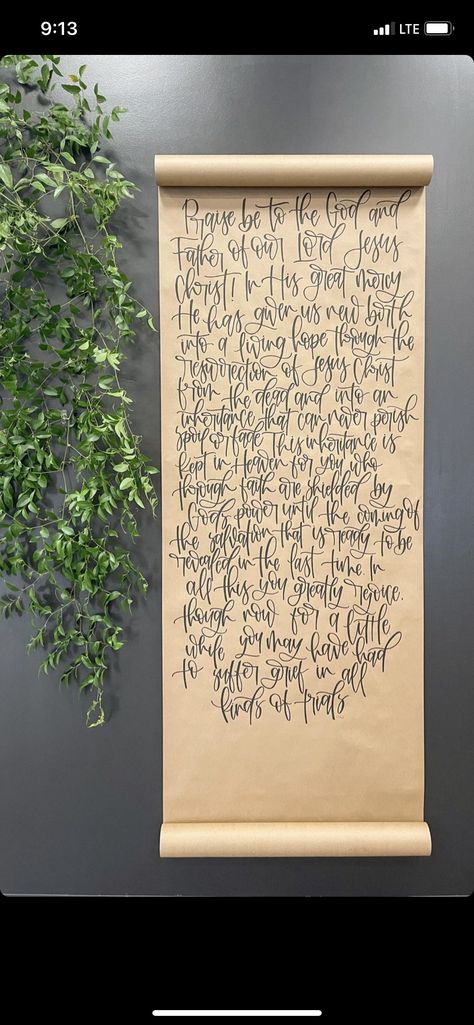 9:13
LTE
Praise be to the God and
Father of our Lord Jesus
Christ! In His great mercy
He has given us new birth
into a living hope through the
resurrection of Jesus Christ
from the dead and into an
inheritance that can never perish
spoil or fade This inheritance is
kept in Heaven for you who
through faith are shielded by
God's power until the coming of
the salvation that is ready to be
revealed in the last time In
all this you greatly rejoice.
though now for a little
while you may have had
to suffer grief in all
kinds of trials